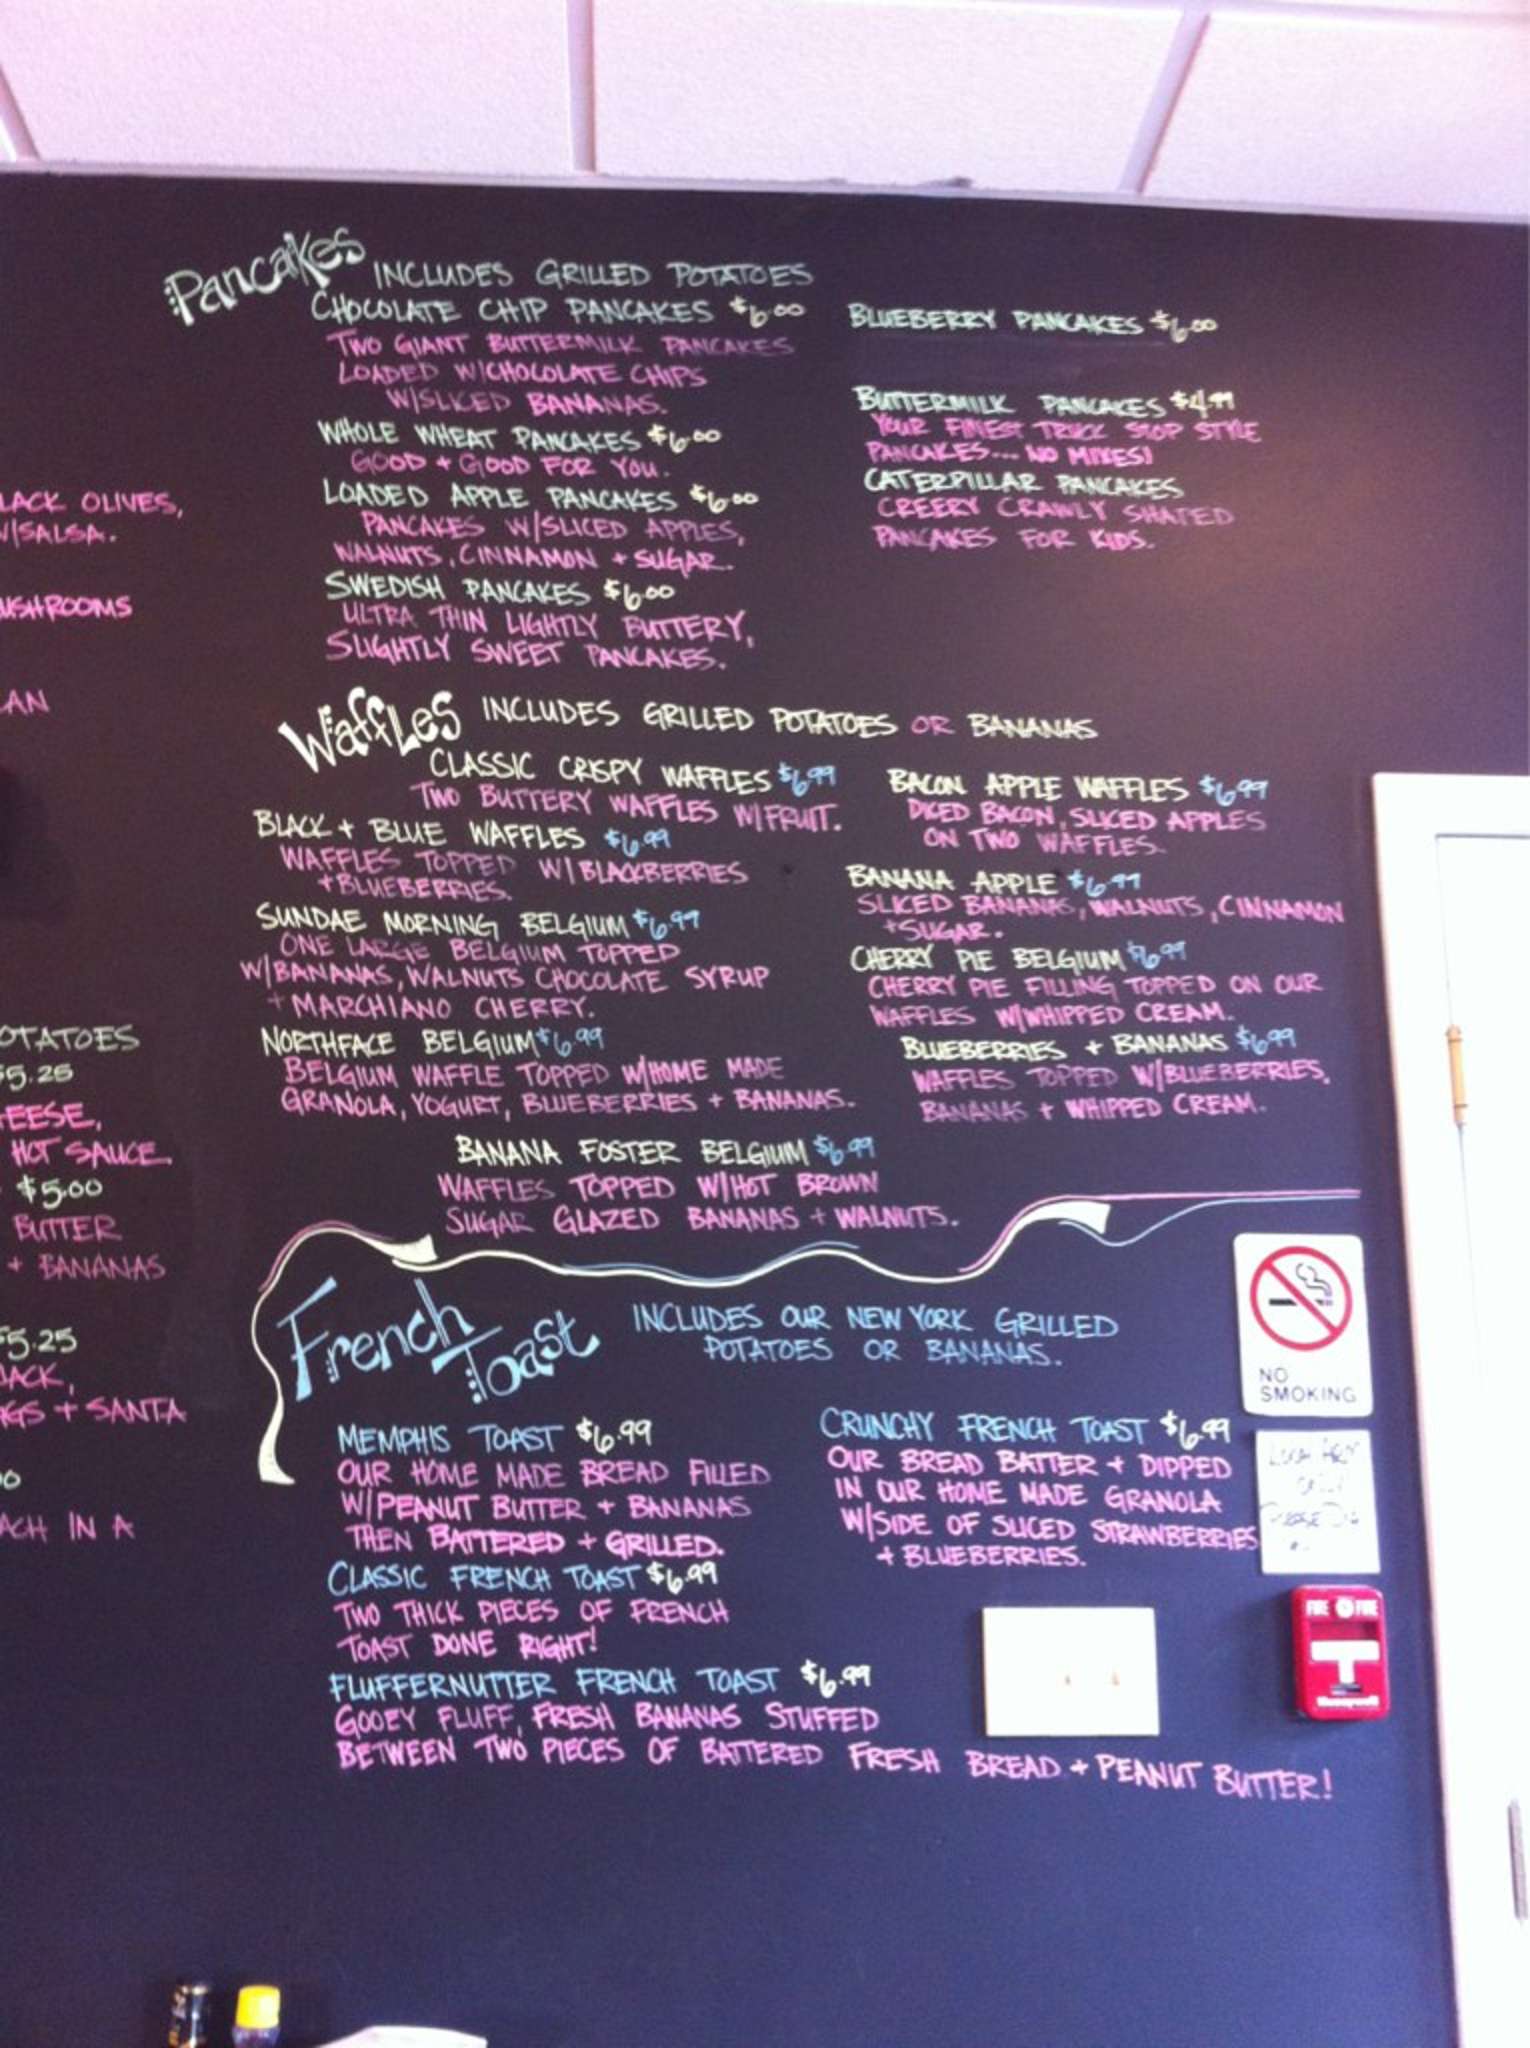 Pancakes INCLUDES GRILLED POTATOES
CHOCOLATE CHIP PANCAKES $6.00
TWO GIANT BUTTERMILK PANCAKES
LOADED W/CHOCOLATE CHIPS
W/SLICED BANANAS.
WHOLE WHEAT PANCAKES $6.00
GOOD + GOOD FOR YOU.
LOADED APPLE PANCAKES $6.00
PANCAKES W/SLICED APPLES,
WALNUTS, CINNAMON + SUGAR.
SWEDISH PANCAKES $6.00
ULTRA THIN LIGHTLY BUTTERY,
SLIGHTLY SWEET PANCAKES.
BLUEBERRY PANCAKES $6.00
BUTTERMILK PANCAKES $4.99
YOUR FINEST TRUCK STOP STYLE
PANCAKES... NO MIXES!
CATERPILLAR PANCAKES
CREEPY CRAWLY SHAPED
PANCAKES FOR KIDS.
Waffles INCLUDES GRILLED POTATOES OR BANANAS
CLASSIC CRISPY WAFFLES $6.99
TWO BUTTERY WAFFLES W/FRUIT.
BLACK + BLUE WAFFLES $6.99
WAFFLES TOPPED W/BLACKBERRIES
+BLUEBERRIES.
SUNDAE MORNING BELGIUM $6.99
ONE LARGE BELGIUM TOPPED
W/BANANAS, WALNUTS CHOCOLATE SYRUP
+ MARCHIANO CHERRY.
NORTHFACE BELGIUM $6.99
BELGIUM WAFFLE TOPPED W/HOME MADE
GRANOLA, YOGURT, BLUEBERRIES + BANANAS.
BACON APPLE WAFFLES $6.99
DICED BACON, SLICED APPLES
ON TWO WAFFLES.
BANANA APPLE $6.99
SLICED BANANAS, WALNUTS, CINNAMON
+SUGAR.
CHERRY PIE BELGIUM $6.99
CHERRY PIE FILLING TOPPED ON OUR
WAFFLES W/WHIPPED CREAM.
BLUEBERRIES + BANANAS $6.99
WAFFLES TOPPED W/BLUEBERRIES,
BANANAS + WHIPPED CREAM.
BANANA FOSTER BELGIUM $6.99
WAFFLES TOPPED W/HOT BROWN
SUGAR GLAZED BANANAS + WALNUTS.
French Toast INCLUDES OUR NEW YORK GRILLED
POTATOES OR BANANAS.
MEMPHIS TOAST $6.99
OUR HOME MADE BREAD FILLED
W/PEANUT BUTTER + BANANAS
THEN BATTERED + GRILLED.
CLASSIC FRENCH TOAST $6.99
TWO THICK PIECES OF FRENCH
TOAST DONE RIGHT!
FLUFFERNUTTER FRENCH TOAST $6.99
GOOEY FLUFF, FRESH BANANAS STUFFED
BETWEEN TWO PIECES OF BATTERED FRESH BREAD + PEANUT BUTTER!
CRUNCHY FRENCH TOAST $6.99
OUR BREAD BATTER + DIPPED
IN OUR HOME MADE GRANOLA
W/SIDE OF SLICED STRAWBERRIES
+ BLUEBERRIES.
LACK OLIVES,
W/SALSA.
USHROOMS
AN
OTATOES
$5.25
EESE,
HOT SAUCE
$5.00
BUTTER
+ BANANAS
$5.25
JACK,
GS + SANTA
0
ACH IN A
NO
SMOKING
FIRE FIRE
Honeywell